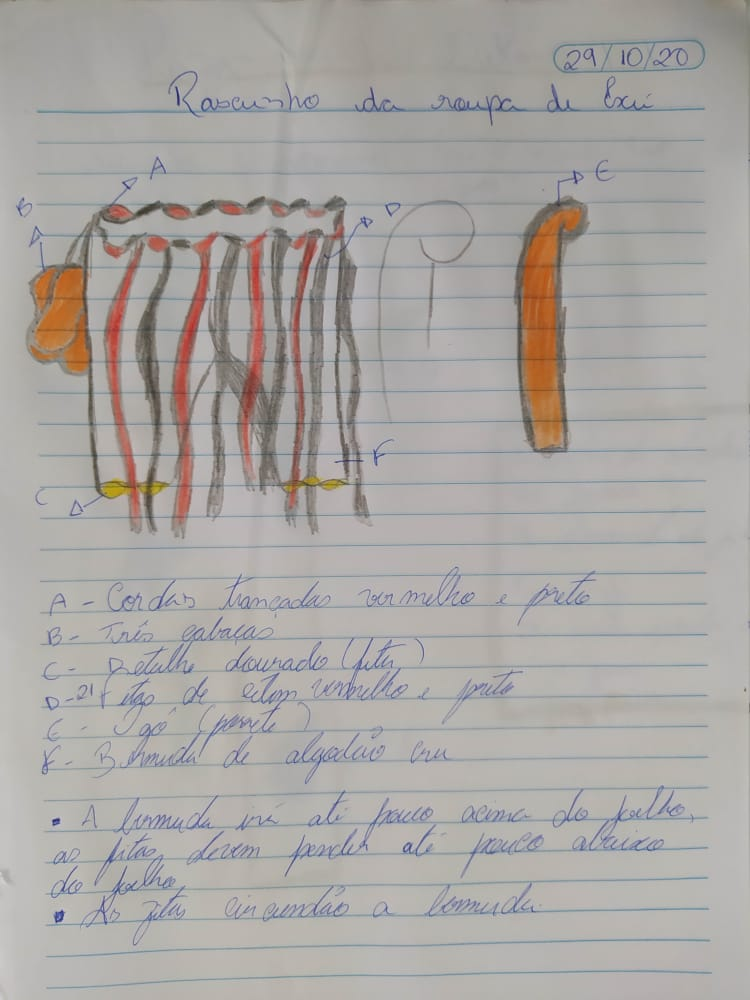 29/10/20
Rascunho da roupa de Exú
A
E
B
D
F
C
A - Cordas trançadas vermelho e preto
B - Três cabaças
C - Detalhe dourado (fita)
D - 21 Fitas de cetim vermelho e preto
E - Ogó (porrete)
F - Bermuda de algodão cru
• A bermuda irá até pouco acima do joelho,
as fitas devem pender até pouco abaixo
do joelho.
• As fitas circundão a bermuda.